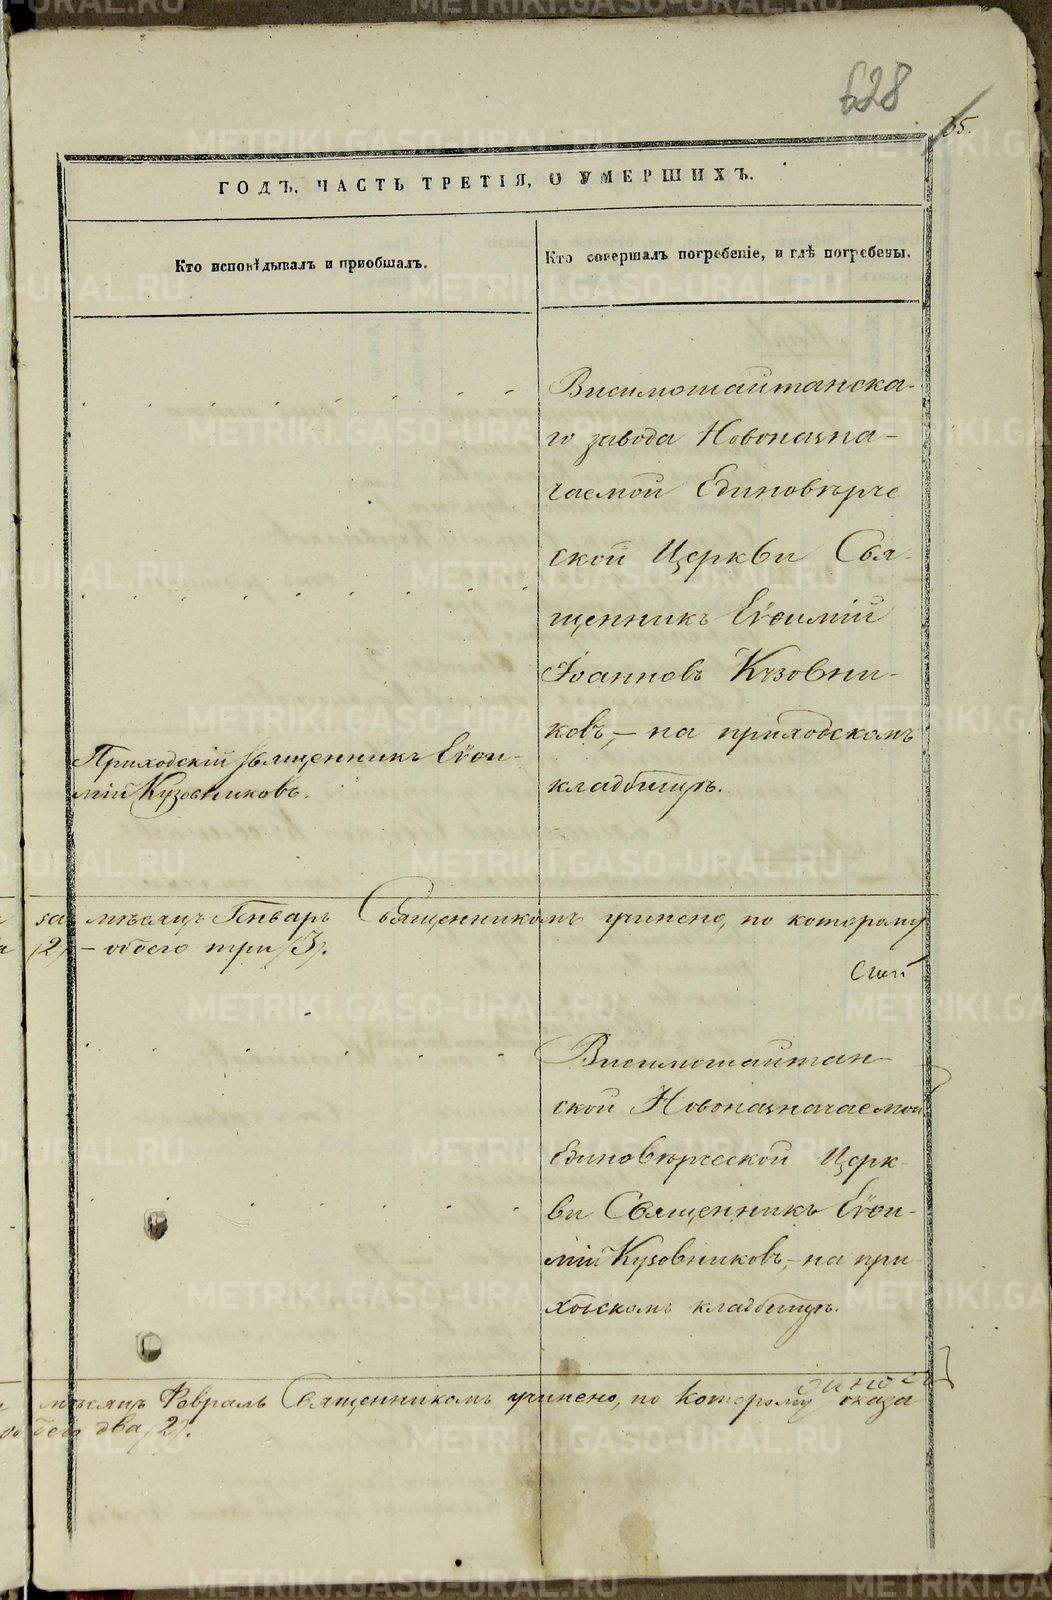 628
35.
ГОДЪ, ЧАСТЬ ТРЕТІЯ, О УМЕРШИХЪ.
Кто исповѣдывалъ и пріобщалъ.
Кто совершалъ погребеніе, и гдѣ погребены.
Висимошайтанска-
го завода Новоназна-
чаемой Единовѣрче
ской Церкви Свя-
щенникъ Евѳимій
Іоанновъ Кузовни-
ковъ, – на приходскомъ
кладбищѣ.
Приходскій Священникъ Евѳи-
мій Кузовниковъ.
за мѣсяцъ Генварь Священникомъ учинено, по которому
(2) – обоего три (3).
Висимошайтан-
ской Новоназначаемой
Единовѣрческой Церк-
ви Священникъ Евѳи-
мій Кузовниковъ, – на при
ходскомъ кладбищѣ.
мѣсяцъ Февраль Священникомъ учинено, по которому оказа
два (2).
METRIKI.GASO-URAL.RU